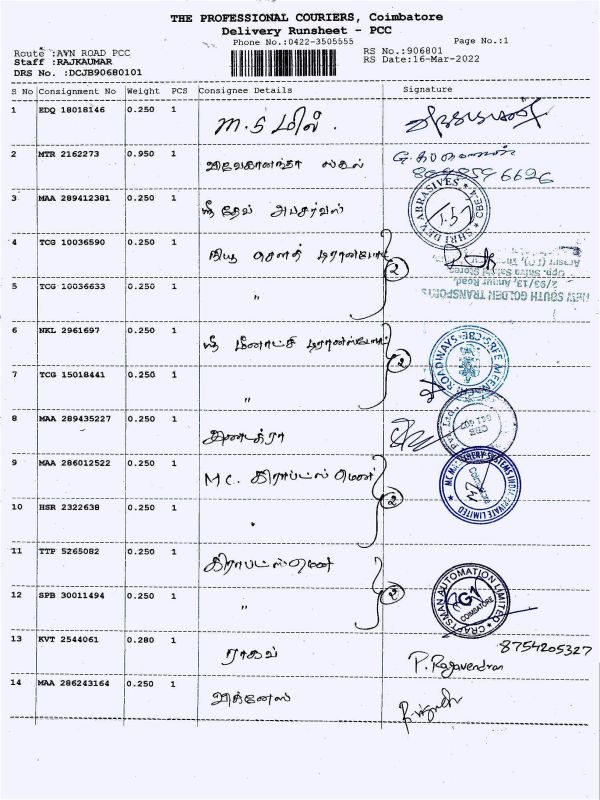 THE PROFESSIONAL COURIERS, Coimbatore
Delivery Runsheet - PCC
Phone No.:0422-3505555
Page No.:1
Route :AVN ROAD PCC
Staff :RAJKUMAR
DRS No. :DCJB90680101
RS No.:906801
RS Date:16-Mar-2022
S No Consignment No Weight PCS Consignee Details Signature
1 EDQ 18018146 0.250 1 M.S மில்.
2 MTR 2162273 0.950 1 விவேகானந்தா
3 MAA 289412381 0.250 1 ஸ்ரீ தேவ்
SHRI DEV ABRASIVES CBE-4
4 TCG 10036590 0.250 1 நியூ சௌத்
2
NEW SOUTH GOLDEN TRANSPORTS
2/93/13, Annur Road,
5 TCG 10036633 0.250 1 "
6 NKL 2961697 0.250 1 ஸ்ரீ மீனாட்சி டிரான்ஸ்போர்ட்
2
7 TCG 15018441 0.250 1 "
8 MAA 289435227 0.250 1
9 MAA 286012522 0.250 1 M C. கிராப்ட்ஸ் மென்
2
10 HSR 2322638 0.250 1 "
11 TTP 5265082 0.250 1 கிராப்ட்ஸ்மென்
2
12 SPB 30011494 0.250 1 "
CRAFTSMAN AUTOMATION LIMITED
COIMBATORE
13 KVT 2544061 0.280 1 ராகவ்
8754205327
P. Ragavendran
14 MAA 286243164 0.250 1 விக்னேஸ்